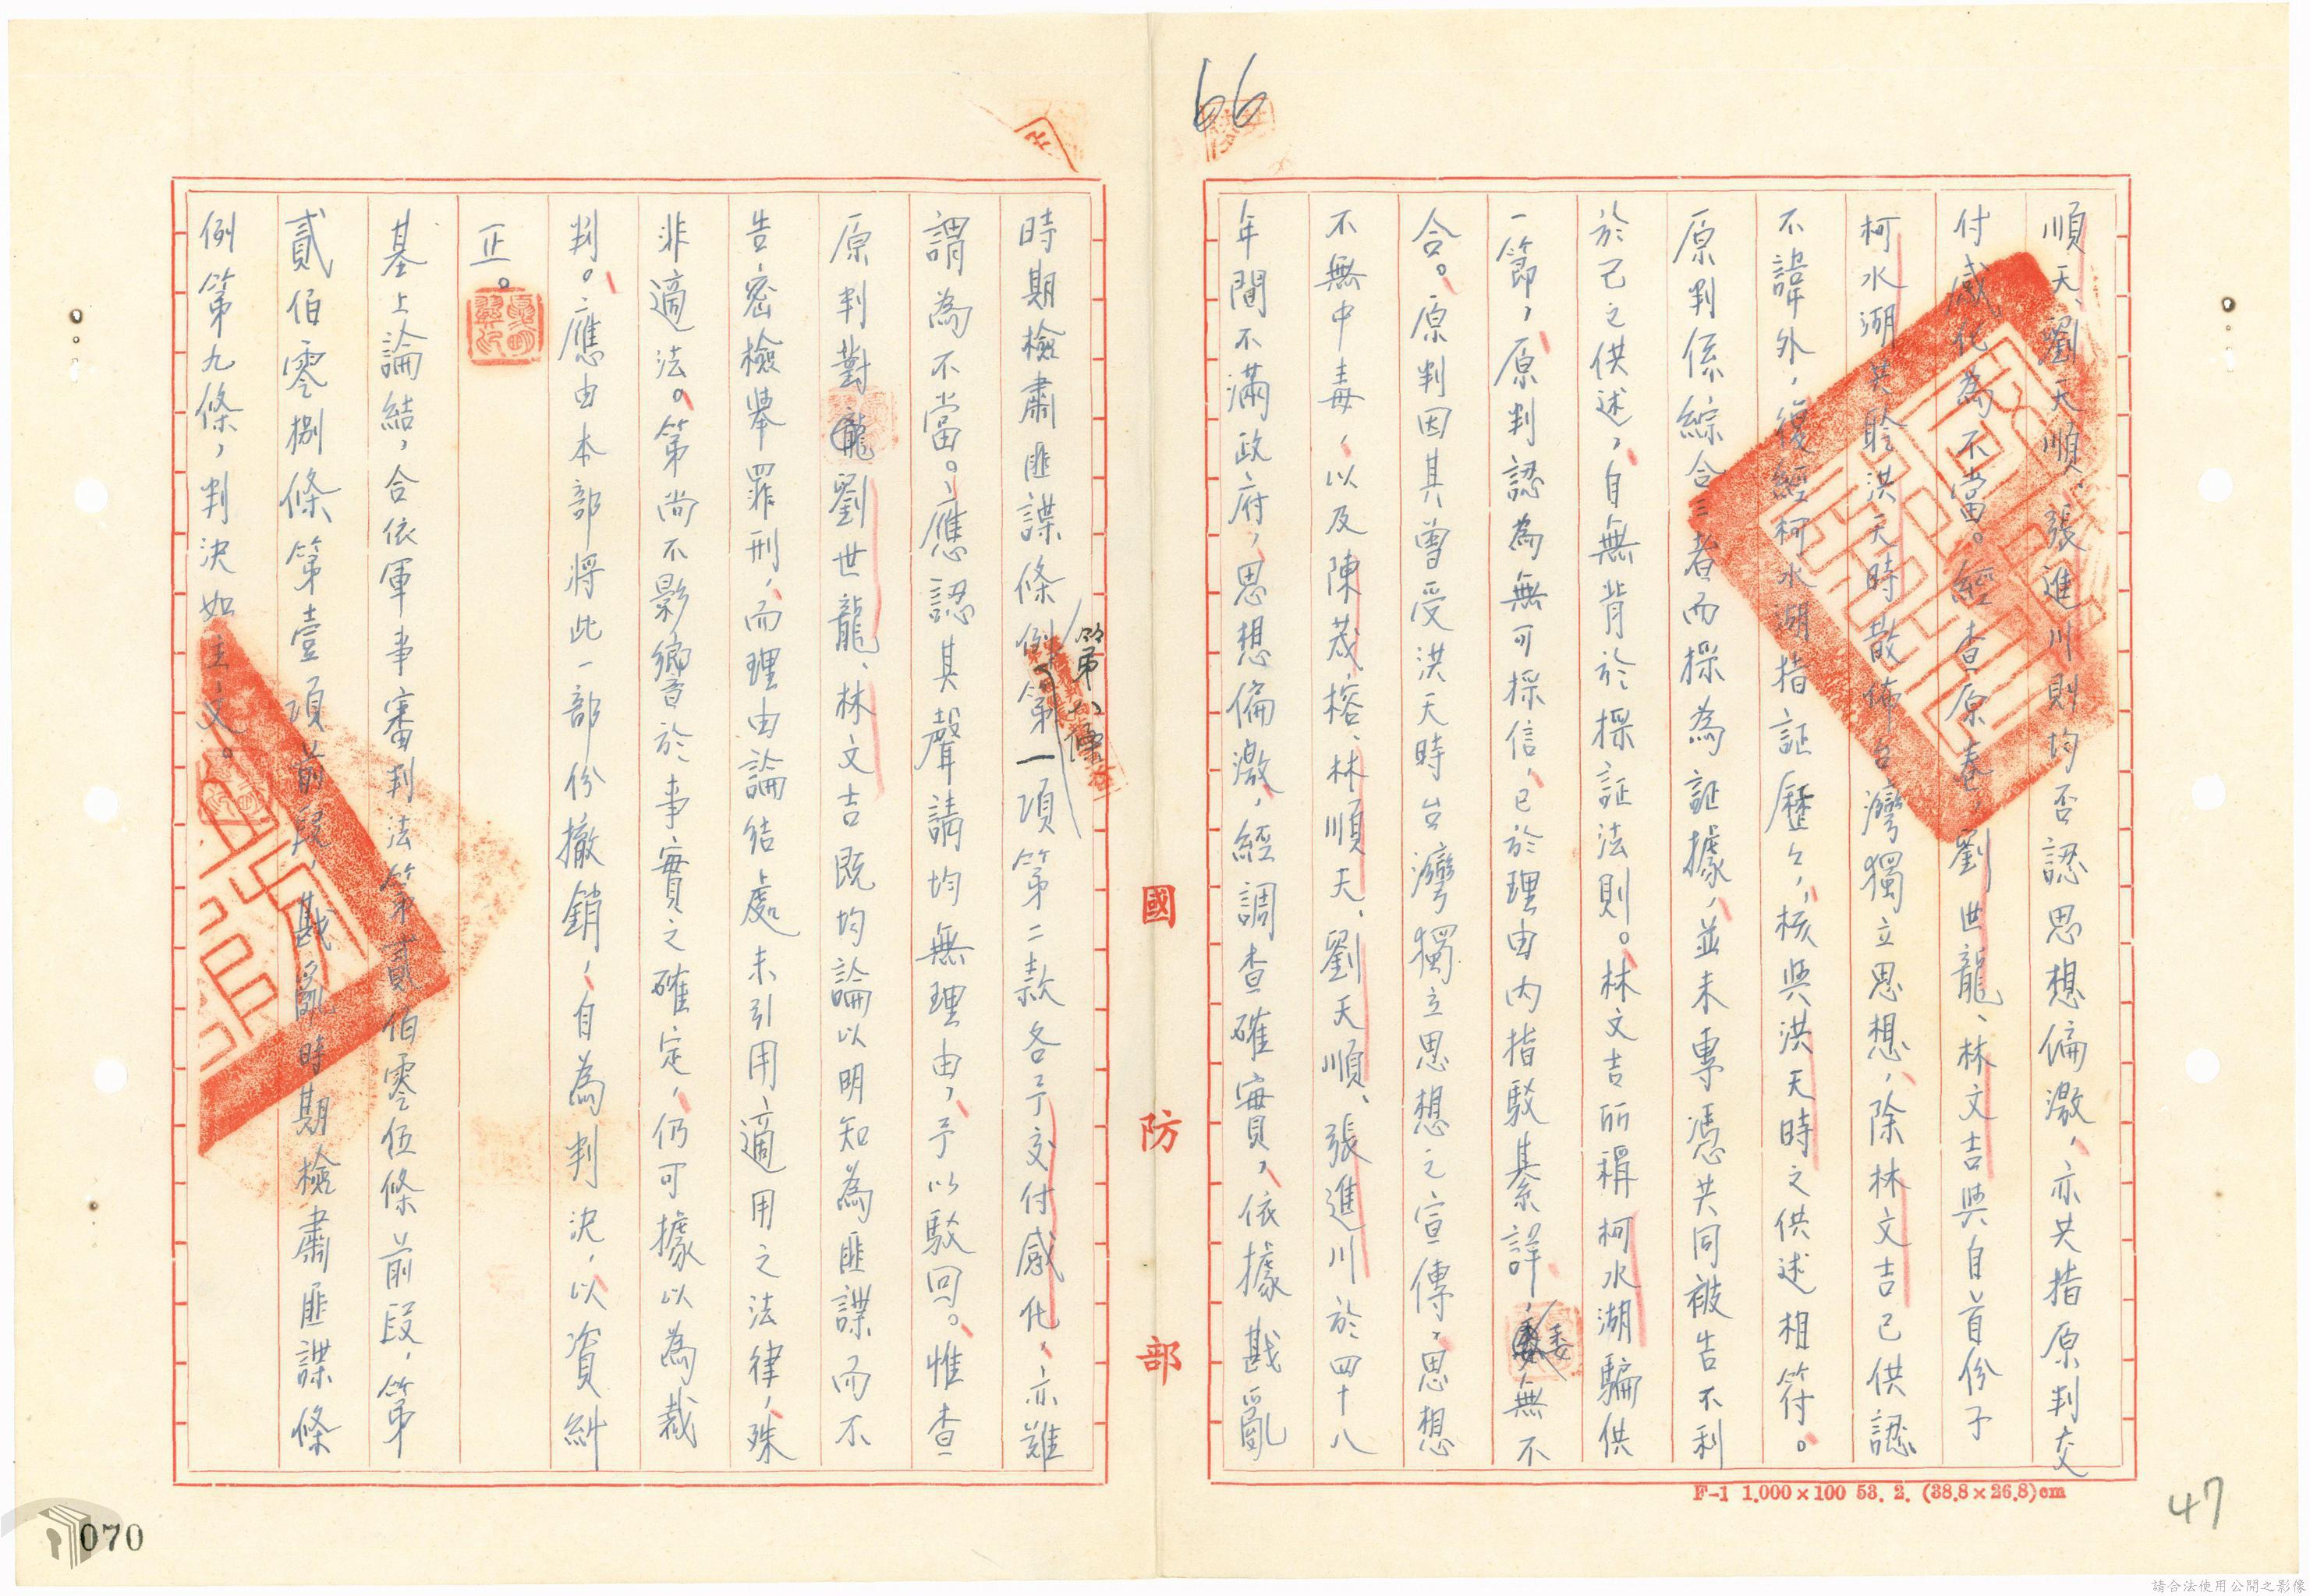 66
順天、劉天順、張進川則均否認思想偏激，亦共指原判交
付感化為不當。經查原卷，劉世龍、林文吉與自首份子
柯水湖共聆洪天時散佈台灣獨立思想，除林文吉已供認
不諱外，復經柯水湖指証歷々，核與洪天時之供述相符。
原判係綜合三者而採為証據，並未專憑共同被告不利
於己之供述，自無背於採証法則。林文吉所稱柯水湖騙供
一節，原判認為無可採信，已於理由內指駁綦詳，委無不
合。原判因其曾受洪天時台灣獨立思想之宣傳，思想
不無中毒，以及陳茂榕、林順天、劉天順、張進川於四十八
年間不滿政府，思想偏激，經調查確實，依據戡亂
國防部
時期檢肅匪諜條例第八條第一項第二款各予交付感化，亦難
謂為不當。應認其聲請均無理由，予以駁回。惟查
原判對劉世龍、林文吉既均論以明知為匪諜而不
告密檢舉罪刑，而理由論結處未引用適用之法律，殊
非適法。第尚不影響於事實之確定，仍可據以為裁
判。應由本部將此一部份撤銷，自為判決，以資糾
正。
基上論結，合依軍事審判法第貳伯零伍條前段，第
貳伯零捌條第壹項前段，戡亂時期檢肅匪諜條
例第九條，判決如主文。
F-1 1.000×100 53. 2. (38.8×26.8)cm
47
070
請合法使用公開之影像